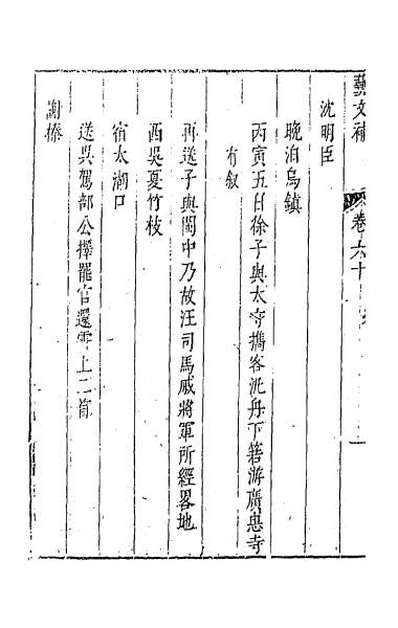 藝文補
卷六十
沈明臣
晚泊烏鎮
丙寅五日徐子與太守攜客汎舟下箬游廣惠寺
有敘
再送子與閩中乃故汪司馬戚將軍所經畧地
西吳夏竹枝
宿太湖口
送吳駕部公擇罷官還霅上二首
謝榛